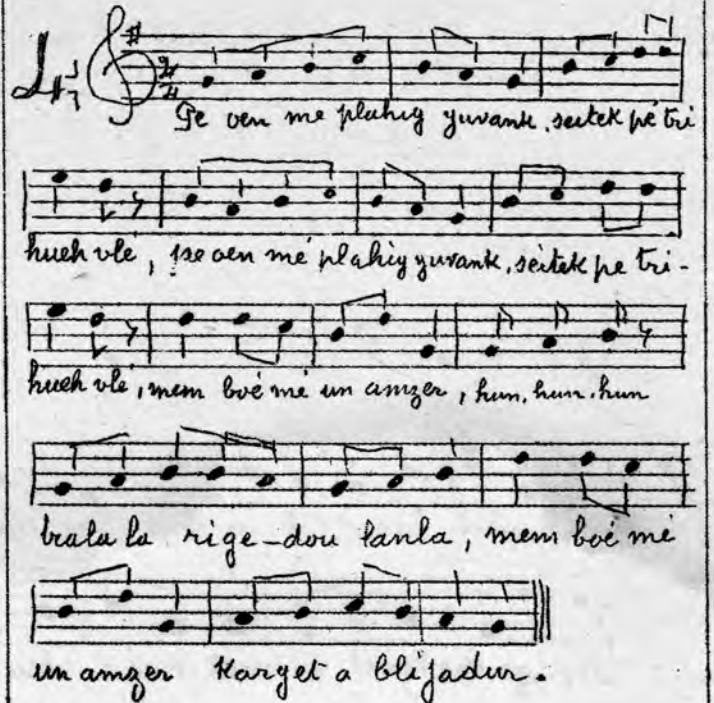 Pe oen me plahig yuvank, seitek pé tri
hueh vlé, pe oen mé plahig yuvank, seitek pe tri-
hueh vlé, mem boé mé un amzer, hun, hun, hun
tralala rige-dou lanla, mem boé mé
un amzer karget a blijadur.